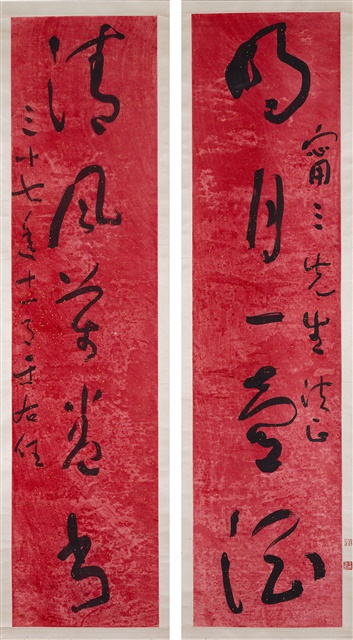 甯三先生法正
明月一壺酒
清風萬卷書
三十七年十二月于右任